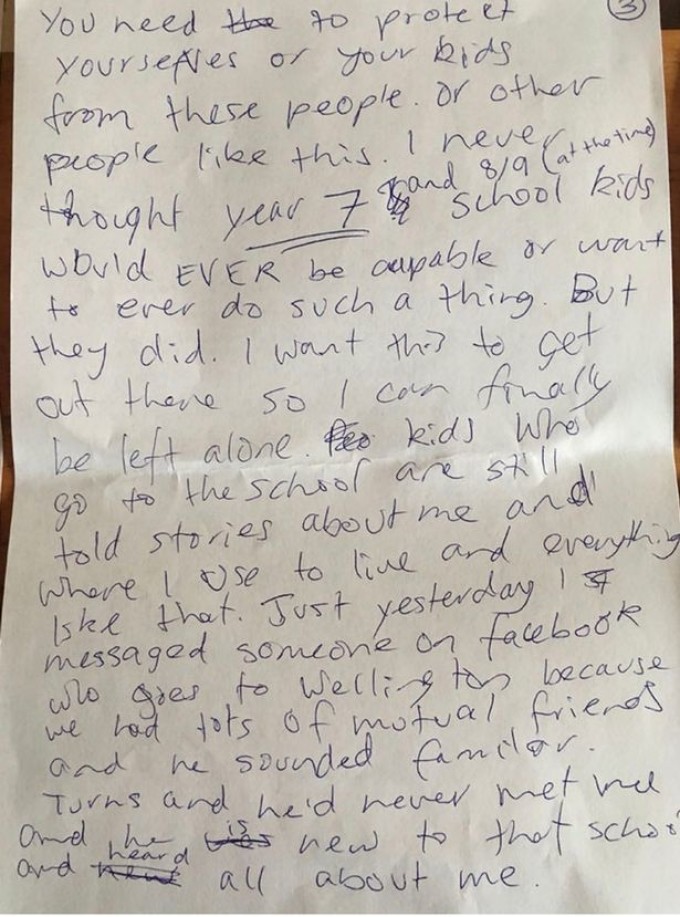 3
You need to protect
yourselves or your kids
from these people. Or other
people like this. I never
thought year 7 and 8/9 (at the time) school kids
would EVER be capable or want
to ever do such a thing. But
they did. I want this to get
out there so I can finally
be left alone. kids who
go to the school are still
told stories about me and
where I use to live and everything
like that. Just yesterday I
messaged someone on facebook
who goes to Wellington because
we had lots of mutual friends
and he sounded familar.
Turns and he'd never met me
and he is new to that school
and heard all about me.